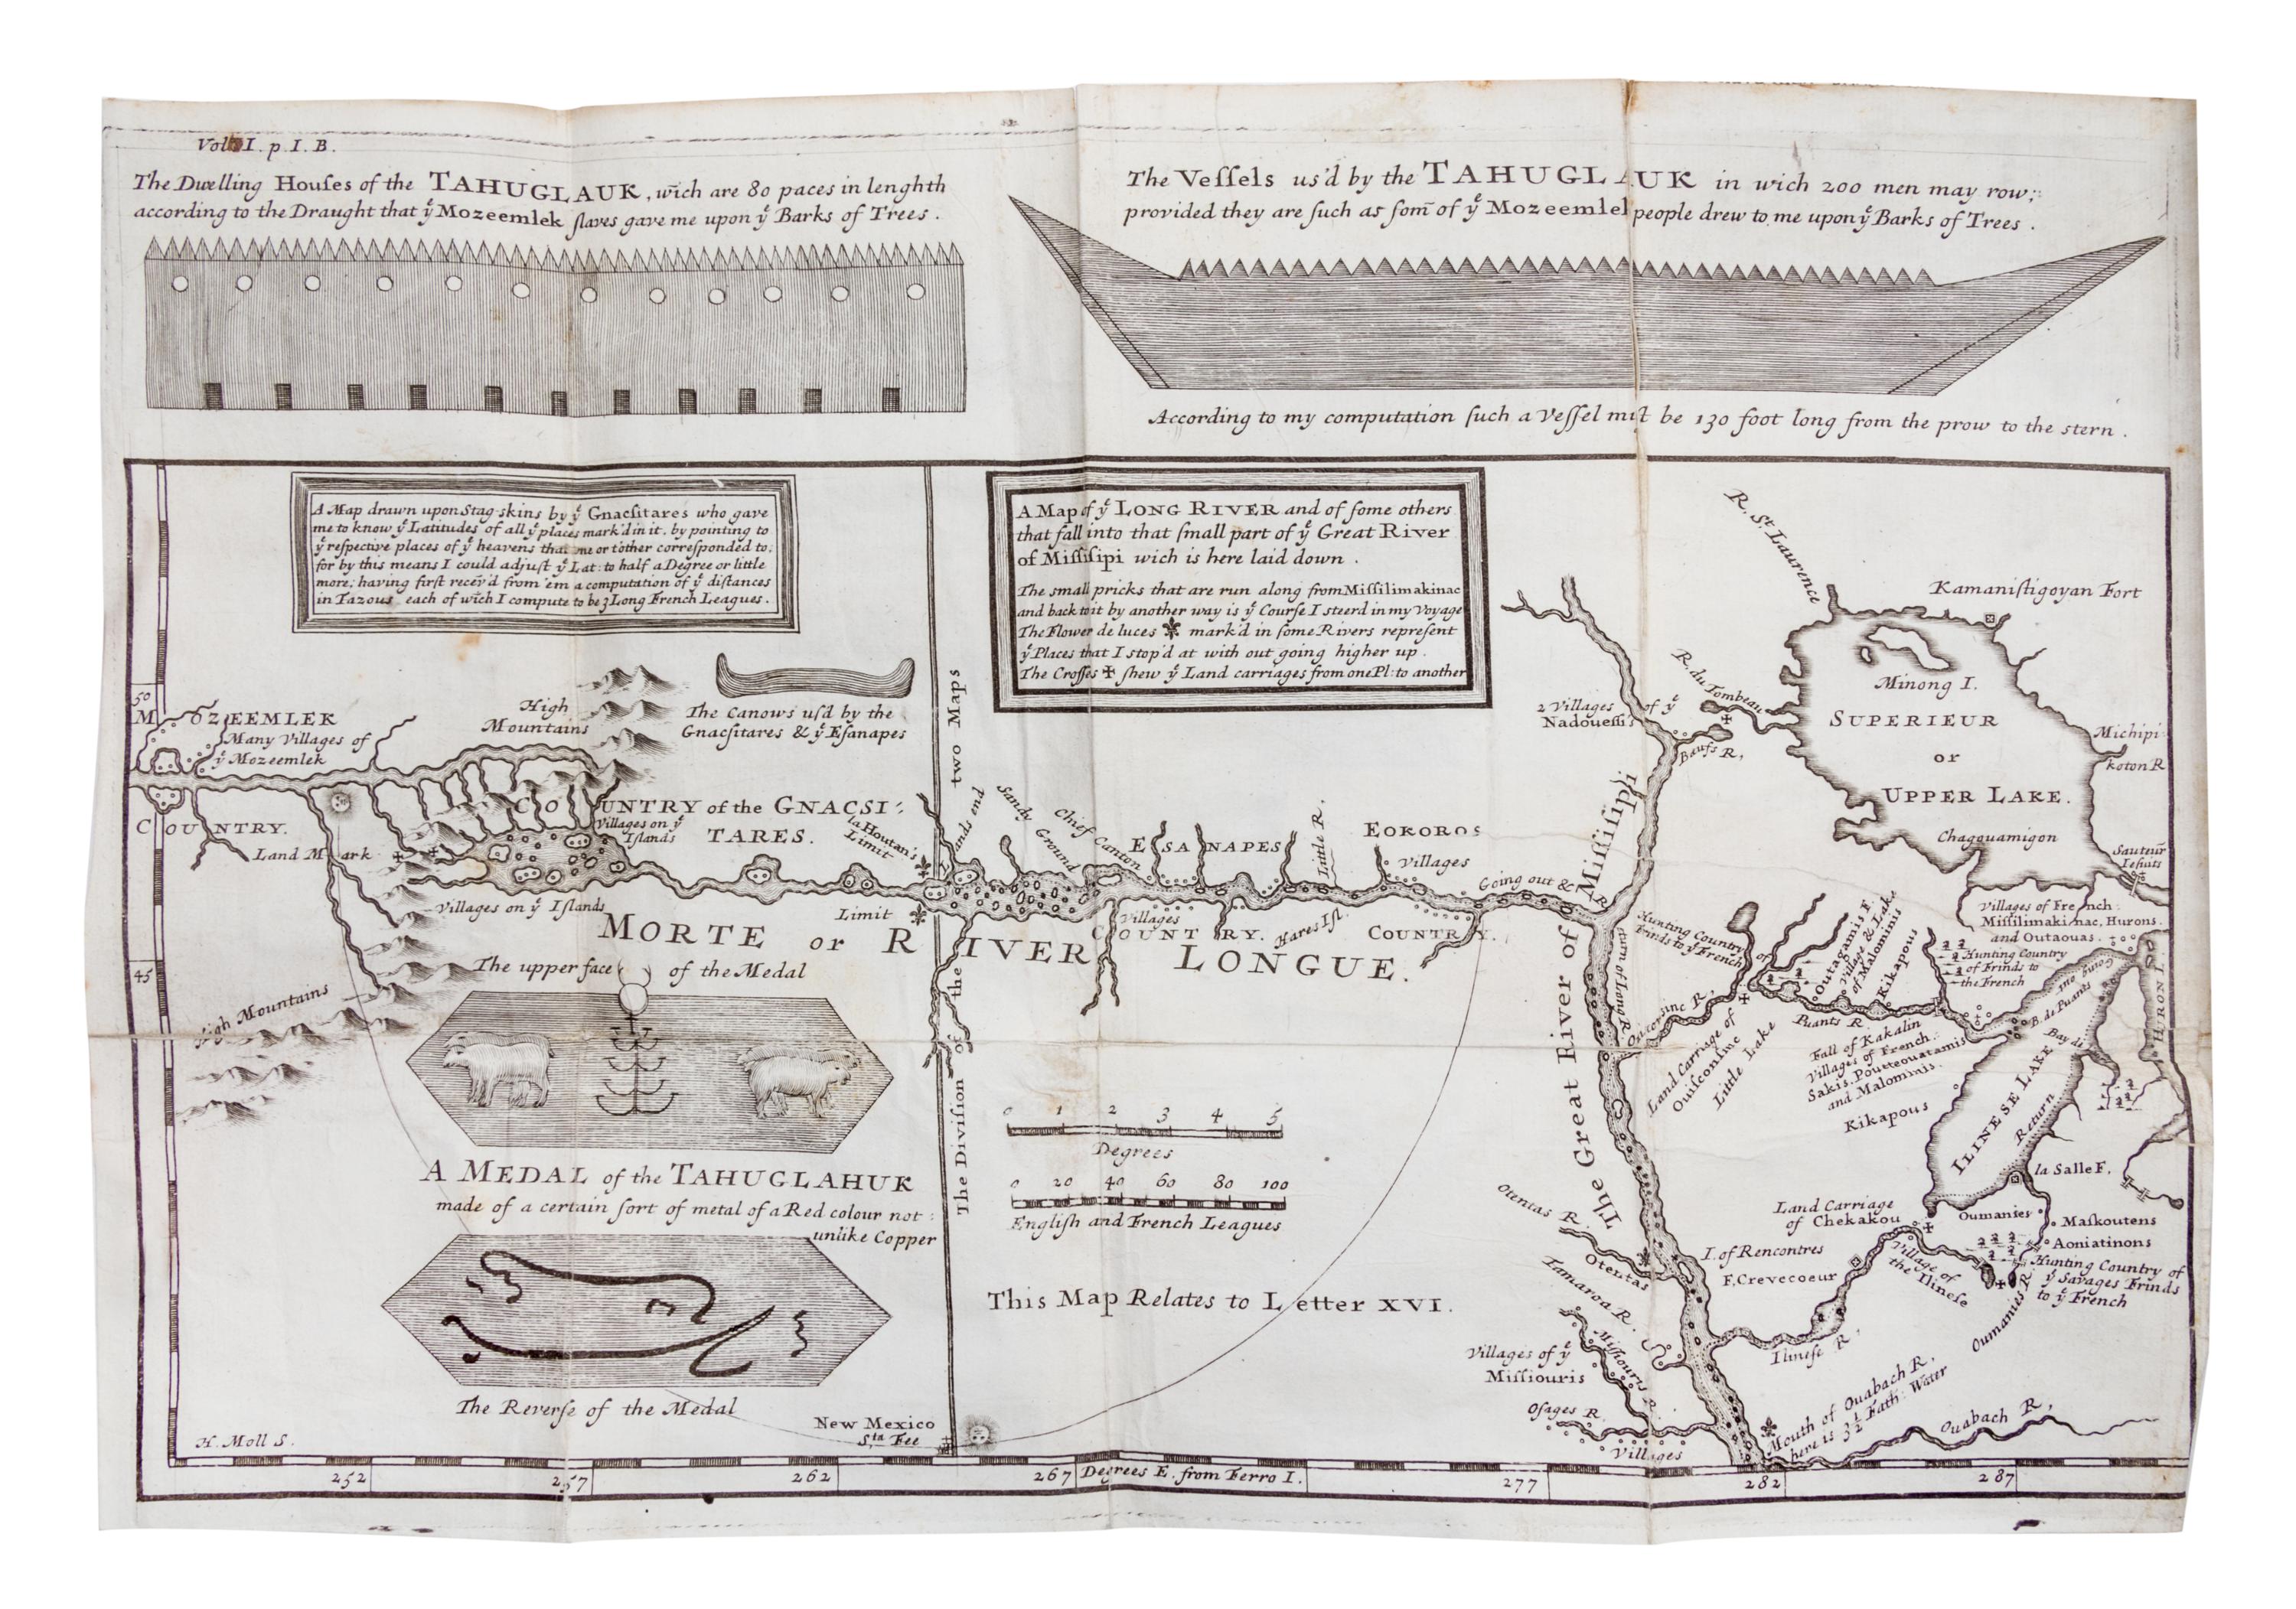 Vol. I. p. I. B.
The Dwelling Houſes of the TAHUGLAUK, wich are 80 paces in lenghth
according to the Draught that yͤ Mozeemlek ſlaves gave me upon yͤ Barks of Trees.
The Veſſels us'd by the TAHUGLAUK in wich 200 men may row;
provided they are ſuch as ſom̄ of yͤ Mozeemlek people drew to me upon yͤ Barks of Trees.
According to my computation ſuch a Veſſel muſt be 130 foot long from the prow to the stern.
A Map drawn upon Stag-skins by yͤ Gnacſitares who gave
me to know yͤ Latitudes of all yͤ places mark'd in it, by pointing to
yͤ reſpective places of yͤ heavens that one or t'other correſponded to;
for by this means I could adjuſt yͤ Lat: to half a Degree or little
more; having firſt recev'd from 'em a computation of yͤ diſtances
in Tazous each of wich I compute to be 3 Long French Leagues.
A Map of yͤ LONG RIVER and of ſome others
that fall into that ſmall part of yͤ Great River
of Miſſiſipi wich is here laid down.
The small pricks that are run along from Miſſilimakinac
and back to it by another way is yͤ Courſe I steer'd in my Voyage
The Flower de luces ⚜ mark'd in ſome Rivers repreſent
yͤ Places that I stop'd at with out going higher up.
The Croſſes ✠ ſhew yͤ Land carriages from one Pl: to another
50
MOZEEMLEK
Many Villages of
yͤ Mozeemlek
COUNTRY.
Land Mark
High
Mountains
The Canows uſ'd by the
Gnacſitares & yͤ Eſanapes
COUNTRY of the GNACSI-
TARES.
Villages on yͤ
Iſlands
la Hontan's
Limit
Villages on yͤ Iſlands
Limit
45
High Mountains
MORTE or RIVER LONGUE.
The Division of the two Maps
Lands end
Sandy Ground
Chief Canton
ESSANAPES
COUNTRY.
Villages
Hares Iſl.
Little R.
EOKOROS
Villages
COUNTRY.
Going out &
return of Long R.
The Great River of Miſſiſipi R
The upper face of the Medal
A MEDAL of the TAHUGLAHUK
made of a certain ſort of metal of a Red colour not
unlike Copper
The Reverſe of the Medal
0 1 2 3 4 5
Degrees
0 20 40 60 80 100
Engliſh and French Leagues
This Map Relates to Letter XVI.
New Mexico
S.ta Fee
H. Moll S.
R. St. Laurence
Kamaniſtigoyan Fort
Minong I.
SUPERIEUR
or
UPPER LAKE.
Michipi
koton R
Chagouamigon
R. du Tombeau
2 Villages of yͤ
Nadoueſſi's
Bœufs R.
Sauteur
Ieſuits
Villages of French
Miſſilimakinac, Hurons
and Outaouas.
Hunting Country
of Frinds to
the French
Hunting Country of
Frinds to yͤ French
Outagamis F.
Village & Lake
of Malominis
Kikapous
Ouiſconsinc R.
Land Carriage of
Ouiſconſinc
Little Lake
Puants R
Fall of Kakalin
Villages of French
Sakis. Poutteouatamis
and Malominis.
Kikapous
Going out
B. de Puants
Bay de
HURON L
ILINESE LAKE
Return
la Salle F.
Land Carriage
of Chekakou
Oumanies
Maſkoutens
Aoniatinons
Hunting Country of
yͤ Savages Frinds
to yͤ French
Oumanies R
Village of
the Ilineſe
I. of Rencontres
F. Crevecoeur
Ilineſe R.
Otentas R.
Otentas
Tamaroa R.
Villages of yͤ
Miſſiouris
Miſſouris R.
Oſages R.
Villages
Mouth of Ouabach R.
here is 3½ Fath: Water
Ouabach R.
252 257 262 267 Degrees E. from Ferro I. 277 282 287